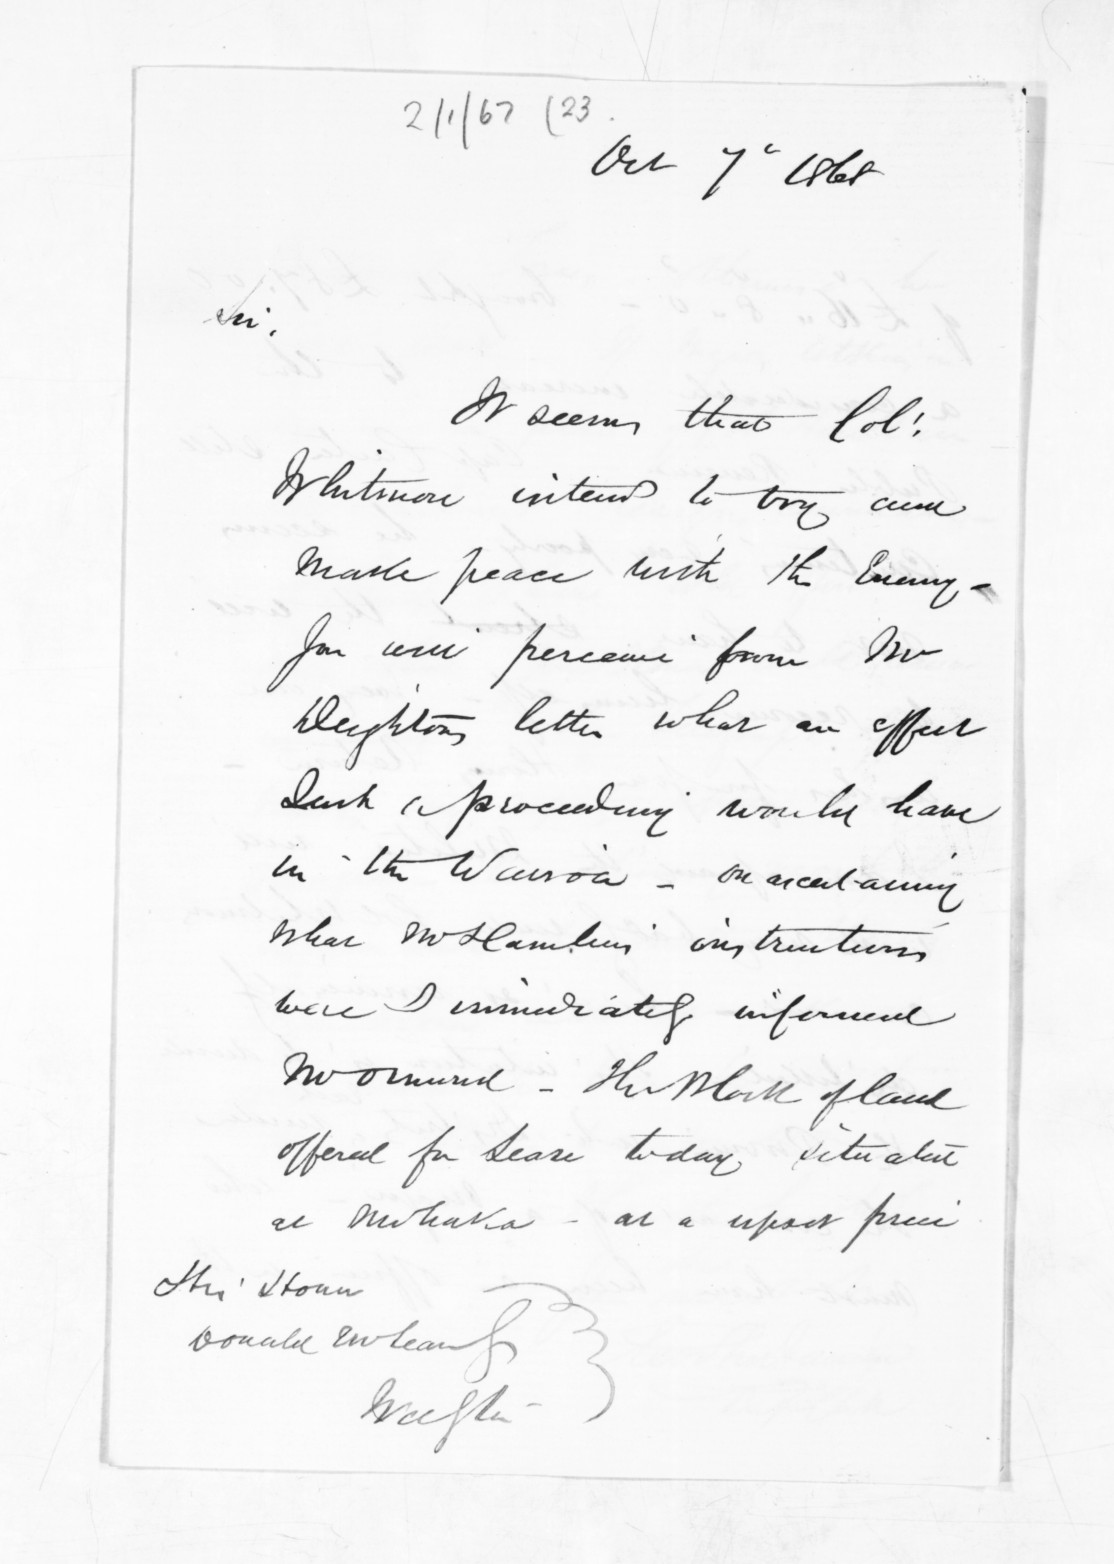 2/1/67 (23.
Oct 7th 1868
Sir,
It seems that Col!
Whitmore intends to try and
make peace with the Enemy -
You will perceive from Mr
Deightons letter what an effect
Such a proceeding would have
in the Wairoa - on ascertaining
what Mr Hamlins instructions
were I immediately informed
Mr Ormond - The Block of land
offered for Lease today situated
at Mohaka - at a upset price
The Honr
Donald McLean
Wellgtn -